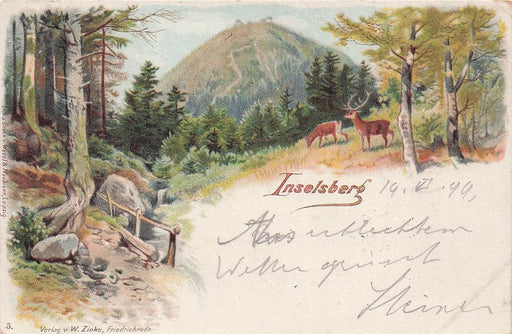 Inselsberg 19. VI 99,
Aus schlechtem
Wetter grüsst
5. Verlag v. W. Zinke, Friedrichroda.